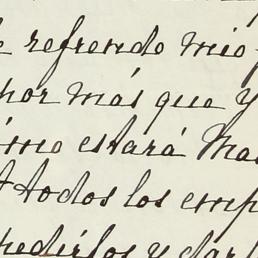 refrendo mio
por más que y
imo estará Ma
todos los emp
pedirlos y dar